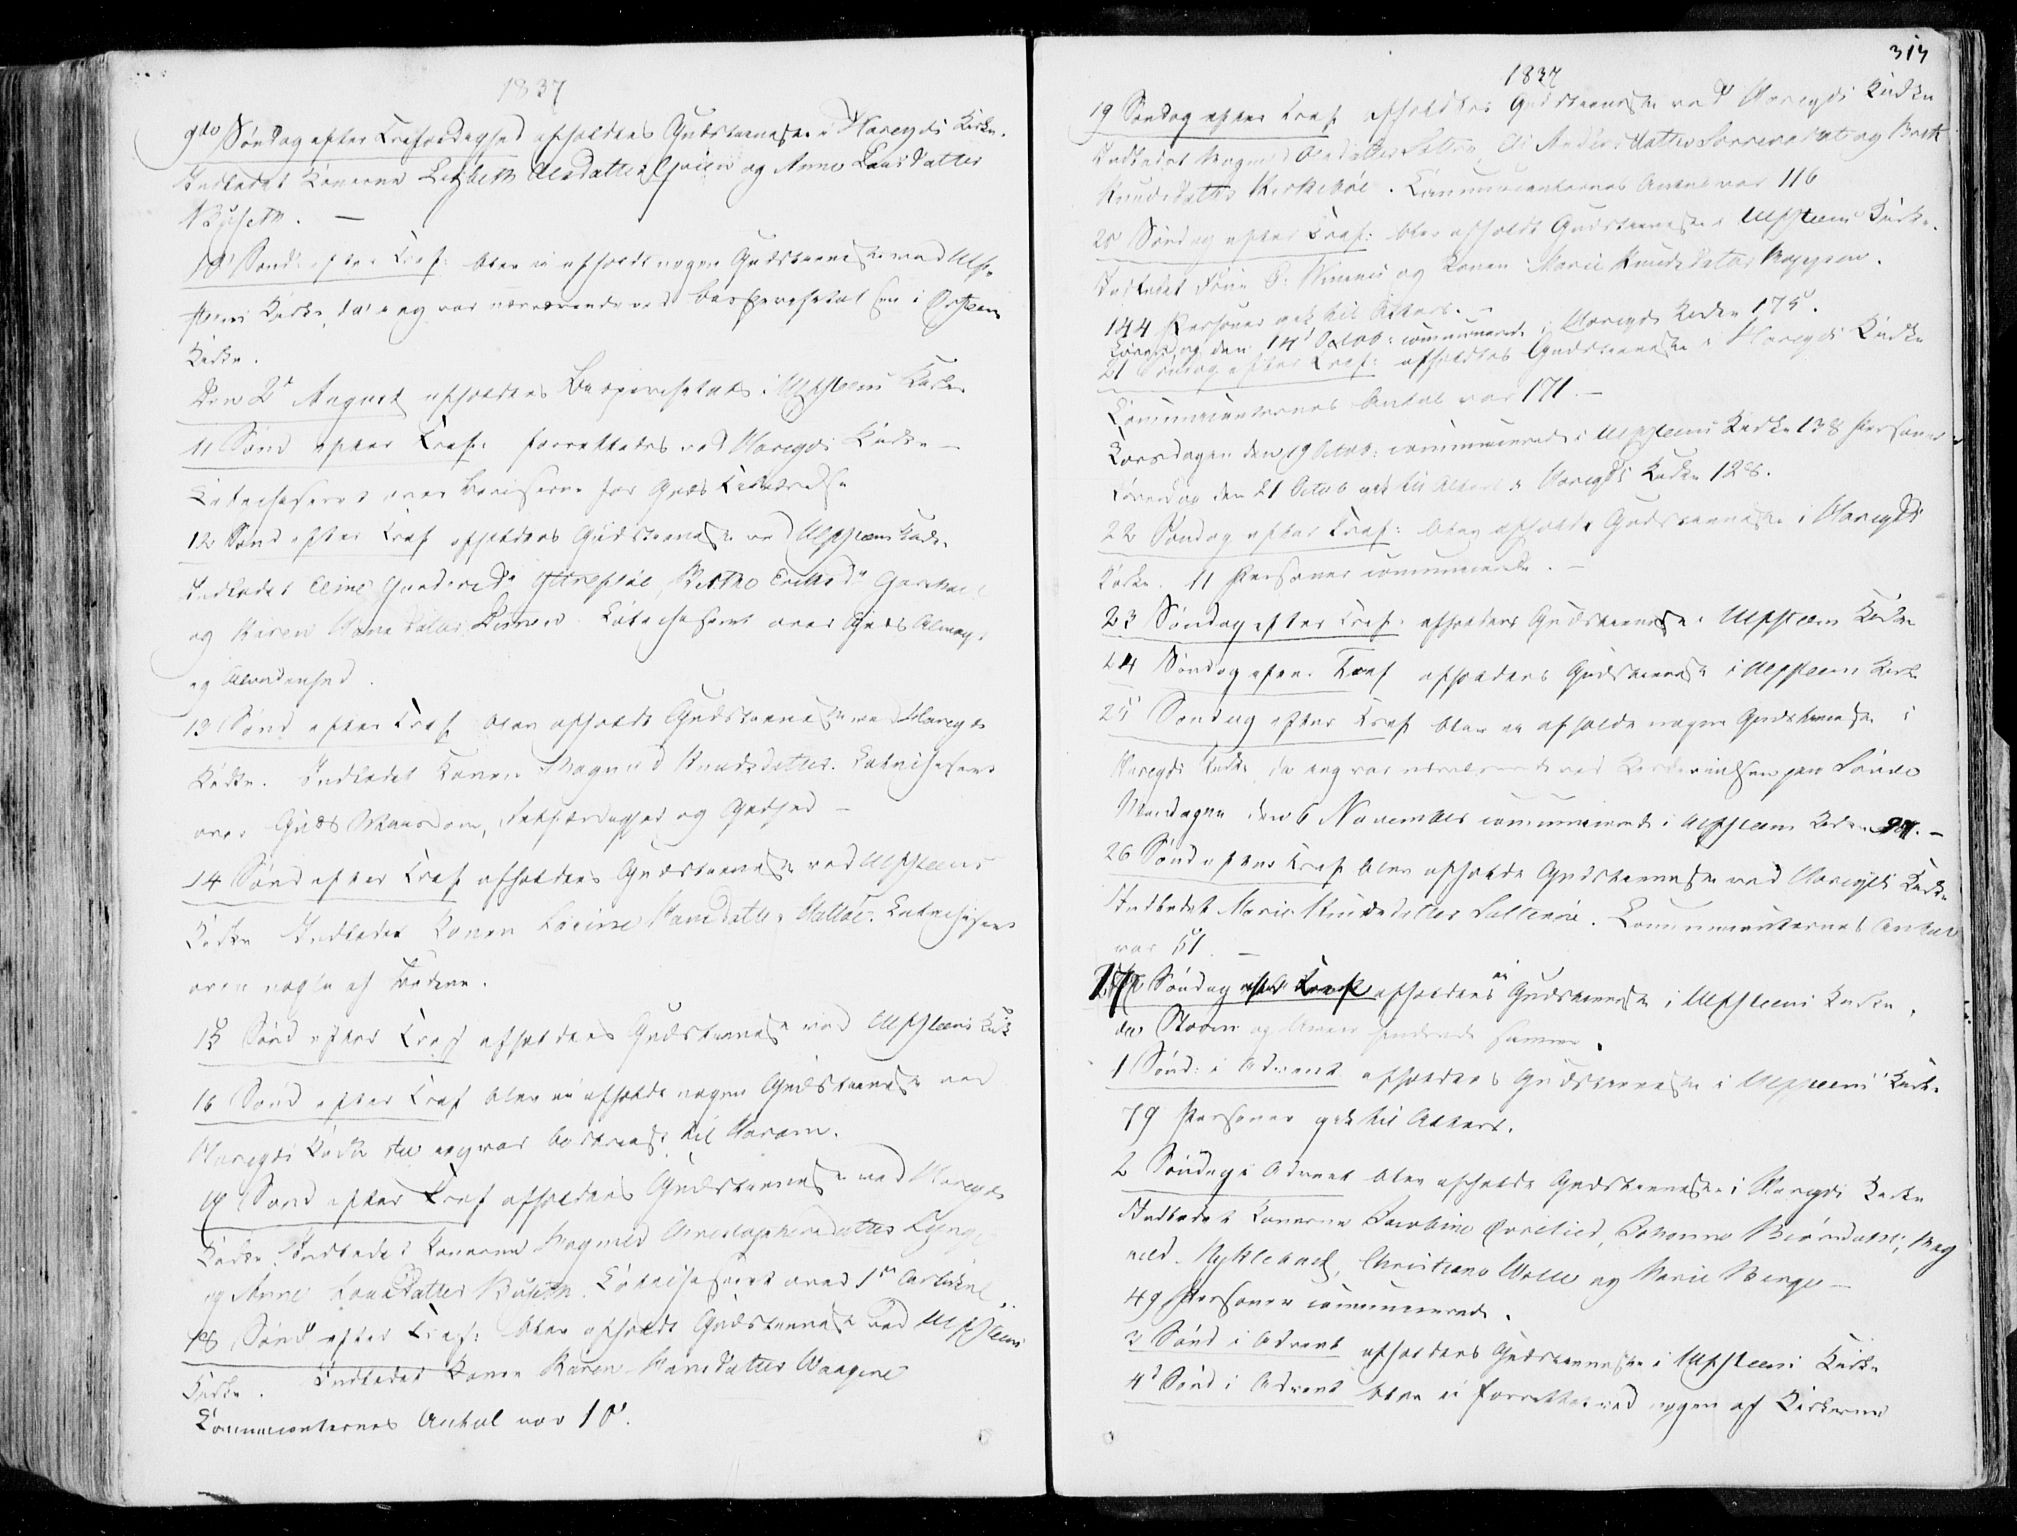 1837
9de Søndag efter Trefoldighed afholdtes Gudstieneste i Hareyds Kirke.
Indledet Konerne Lisbeth Olsdatter og Anne Larsdatter
Buset. —
10d Sønd: efter Tref: blev ei afholdt nogen Gudstieneste ved Ulf-
steens Kirke, da jeg var nærværende ved Bispevisitatsen i Ørsteens
Kirke.
Den 2d August afholdtes Bispevisitats i Ulfsteens Kirke
11 Sønd efter Tref: forrettedes ved Hareyds Kirke —
Catechiseret over Beviserne for Guds Tilværelse
12 Sønd efter Tref afholdtes Gudstieneste ved Ulfsteens Kirke.
Indledet Eline Berthe Eriksdr
og Karen Hansdatter Catechiseret over Guds Almagt
og Alvidenhed.
13 Sønd efter Tref blev afholdt Gudstieneste ved Hareyds
Kirke. Indledet Konen Magnild Knudsdatter. Catechiseret
over Guds Viisdom, Retfærdighed og Godhed —
14 Sønd efter Tref afholdtes Gudstieneste ved Ulfsteens
Kirke Indledet Konen Hansdatter Hatløe. Catechiseret
over nogle af
15 Sønd efter Tref afholdtes Gudstieneste ved Ulfsteens Kirk
16 Sønd efter Tref blev ei afholdt nogen Gudstieneste ved
Hareyds Kirke da jeg var bortreist til Haram.
17 Sønd efter Tref afholdtes Gudstieneste ved Hareyds
Kirke. Indledet Konerne Magnild Christophersdatter
og Anne Larsdatter Buset. Catechiseret over 1ste Artikel
18 Sønd efter Tref: blev afholdt Gudstieneste ved Ulfsteens
Kirke. Indledet Konen Karen Hansdatter Waagene
Communicanternes Antal var 10.
1837
19 Søndag efter Tref. afholdtes Gudstieneste ved Hareyds Kirke
Indledet Magnild Olsdatter Andersdatter og Berthe
Knudsdatter Kirkebøe. Communicanternes Antal var 116
20 Søndag efter Tref: blev afholdt Gudstieneste i Ulfsteens Kirke.
Indledet og Konen Marie Knudsdatter
144 Personer gik til Alters. —
Løverdag den 14d Octob: communicerede i Hareyds Kirke 175.
21 Søndag efter Tref: afholdtes Gudstieneste i Hareyds Kirke
Communicanternes Antal var 171. —
Torsdagen den 19 Octob: communicerede i Ulfsteens Kirke 138 Personer
Løverdag den 21 Octob gik til Alters i Hareyds Kirke 128.
22 Søndag efter Tref: blev afholdt Gudstieneste i Hareyds
Kirke. 11 Personer communicerede. —
23 Søndag efter Tref: afholdtes Gudstieneste i Ulfsteens Kirke
24 Søndag efter Tref afholdtes Gudstieneste i Ulfsteens Kirke
25 Søndag efter Tref blev ei afholdt nogen Gudstieneste i
Hareyds Kirke, da jeg var nærværende ved
Mandagen den 6 November communicerede i Ulfsteens Kirke —
26 Sønd efter Tref blev afholdt Gudstieneste ved Hareyds Kirke
Indledet Marie Knudsdatter Communicanternes Antal
var 51. —
27 Søndag efter Tref afholdtes ei Gudstieneste i Ulfsteens Kirke,
da Storm og hindrede samme.
1 Sønd: i Advent afholdtes Gudstieneste i Ulfsteens Kirke
79 Personer gik til Alters.
2 Søndag i Advent blev afholdt Gudstieneste i Hareyds Kirke
Indledet Konerne Jacobine Øvrelied, Johanne Mag
nild Myklebust, Christiane og Marie Berge —
49 Personer communicerede.
3 Sønd i Advent afholdtes Gudstieneste i Ulfsteens Kirke
4d Sønd i Advent blev ei forrettet ved nogen af Kirkerne